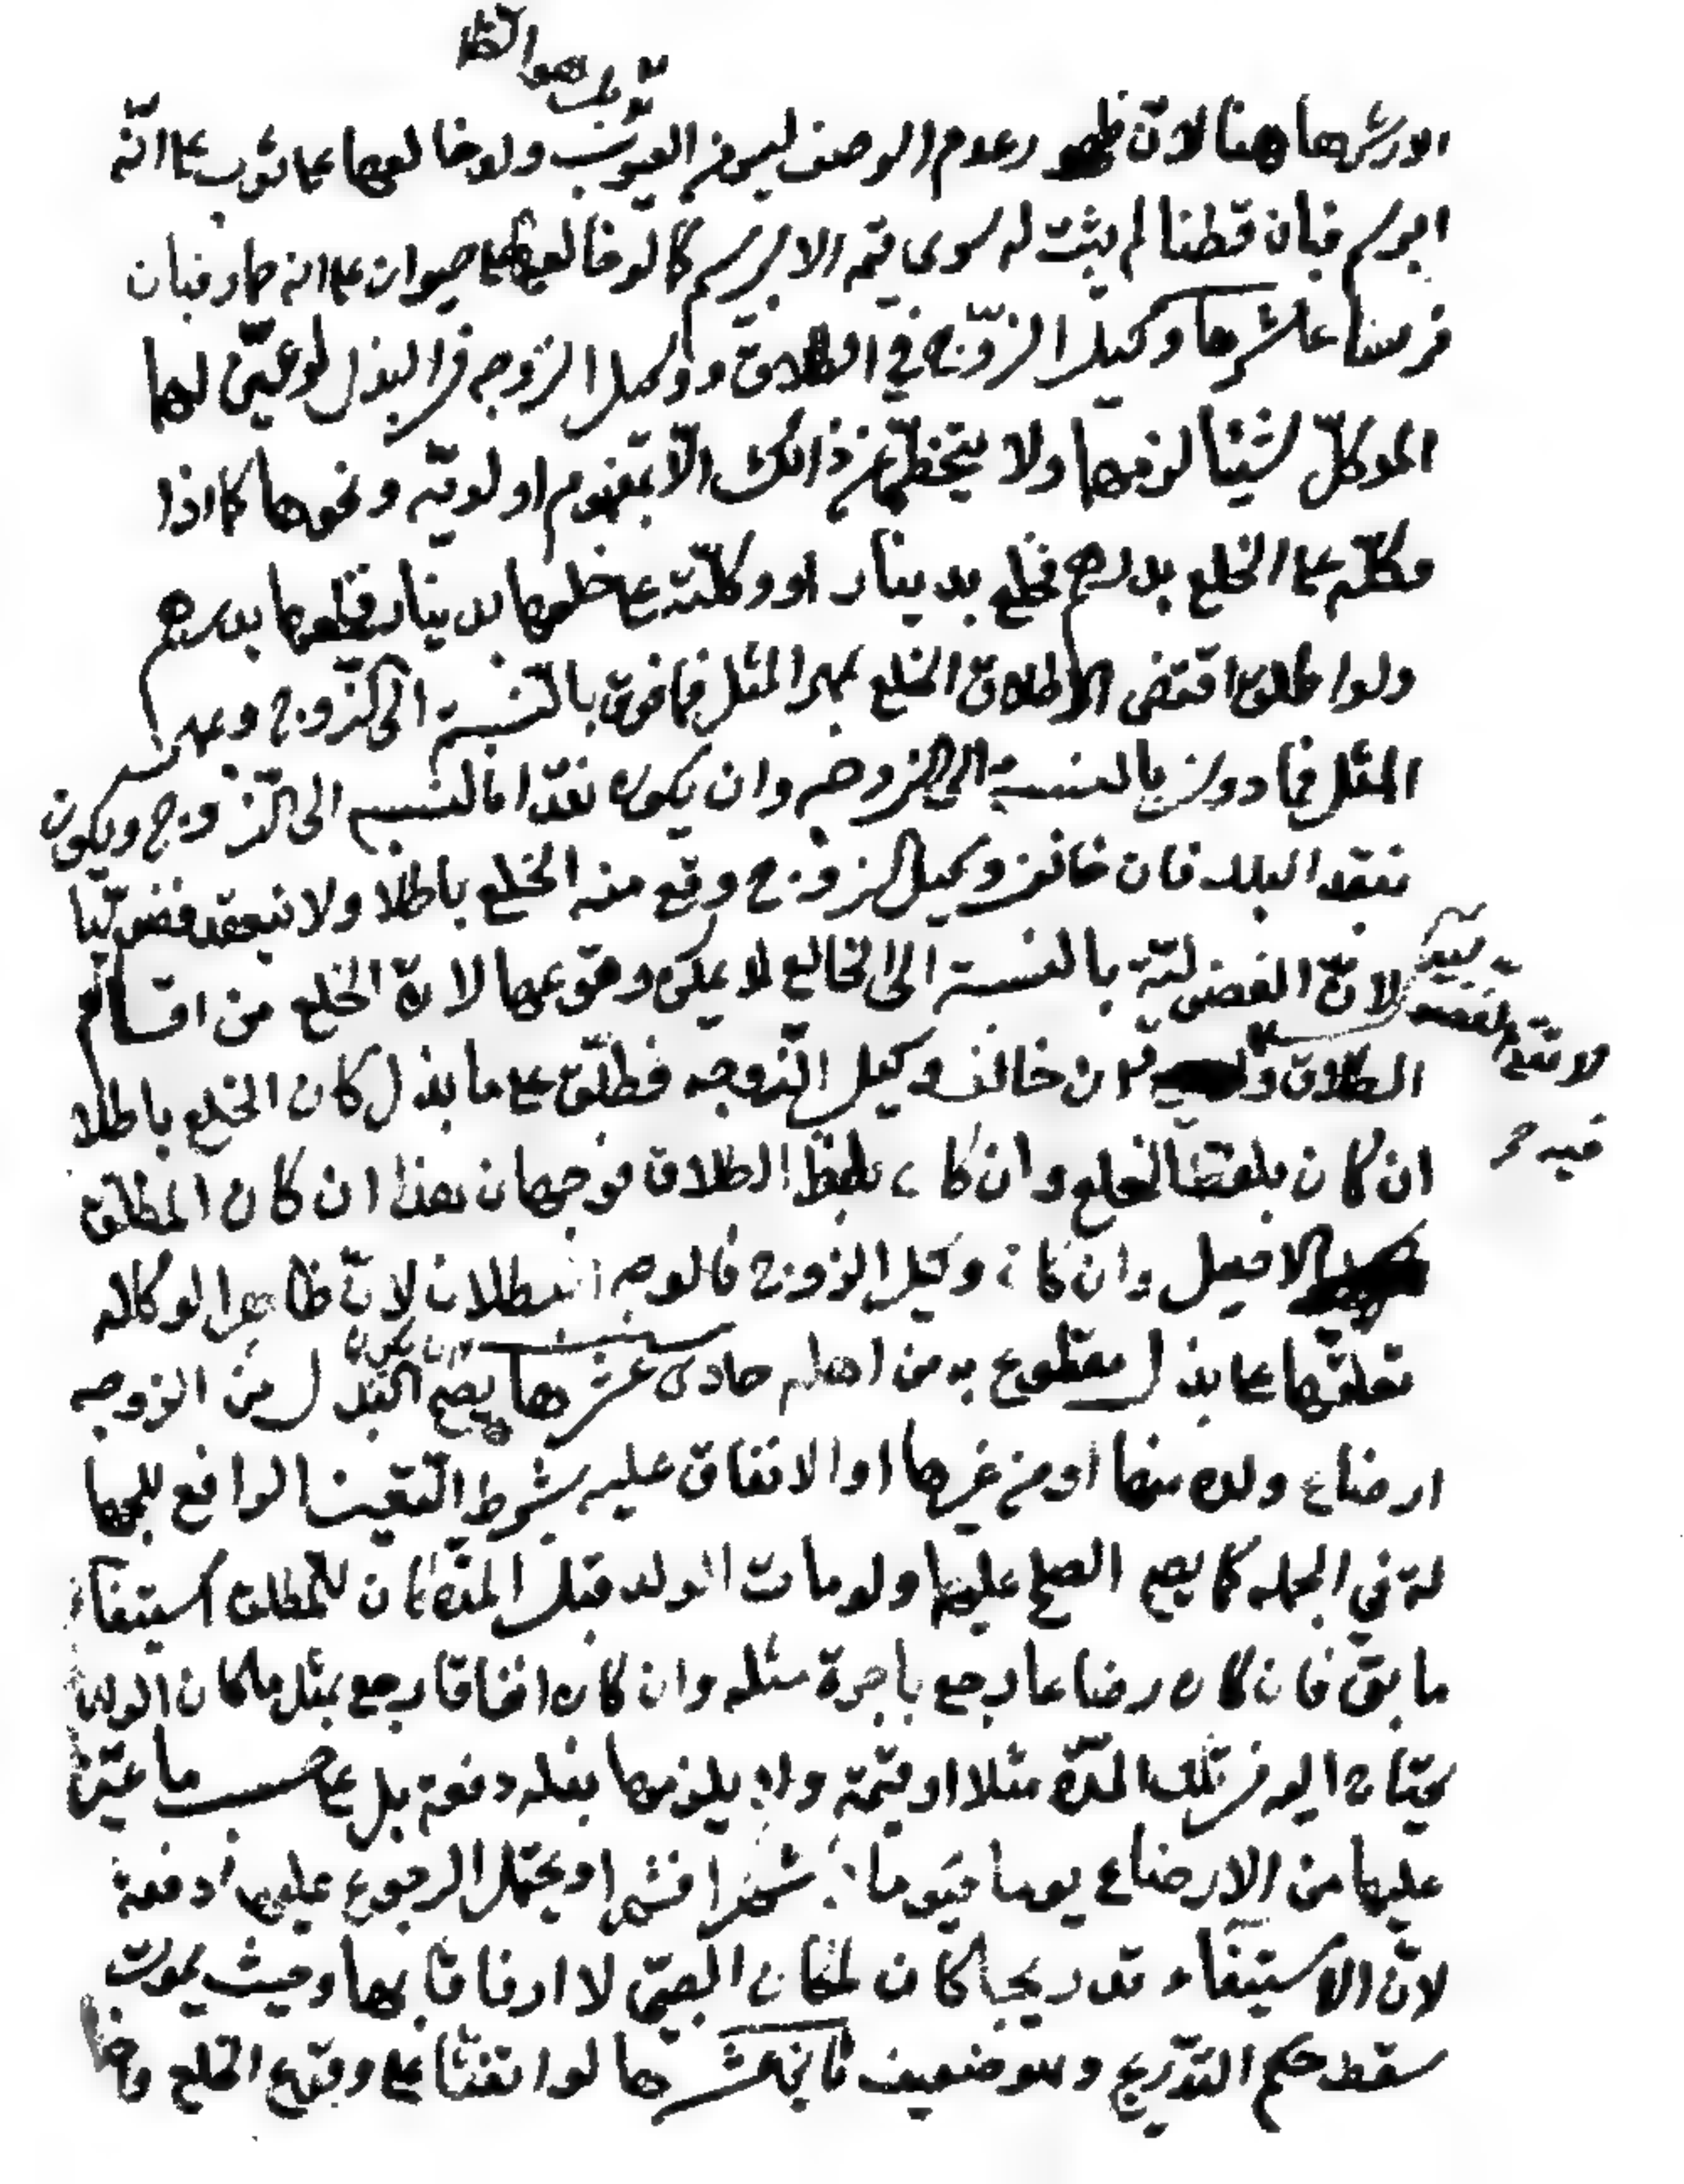 الارش هاهنا لان ظهور عدم الوصف ليس من العيوب ولو خالعها على ثوب على انه
ابريسم فبان قطنا لم يثبت له سوى قيمة الابريسم كما لو خالعها على حيوان على انه حمار فبان
فرسا عاشرها وكيل الزوج في الطلاق ووكيل الزوجه في البذل لو عين لهما
الموكل شيئا لزمها ولا يتخطى عن ذالك الا بمفهوم اولويه ونحوها كما اذا
وكله على الخلع بدرهم فخلع بدينار او وكلته على خلعها بدينار فخلعها بدرهم
ولو اطلق اقتضى الاطلاق الخلع بمهر المثل فما فوق بالنسبة الى الزوج وعهر
المثل فما دون بالنسبة الى الزوجه وان يكون نقدا بالنسبه الى الزوج ويكون
نقد البلد فان خالف وكيل الزوج وقع منه الخلع باطلا ولا ينعقد فضوليا
لان الفضولية بالنسبة الى الخالع لا يمكن وقوعها لان الخلع من اقسام
الطلاق فان خالف وكيل الزوجه فطلق على ما بذل كان الخلع باطلا
ان كان بلفظ الخلع وان كان بلفظ الطلاق فوجهان هذا ان كان المطلق
الاصيل وان كان وكيل الزوج فالوجه البطلان لان ظاهر الوكاله
تعلقها على بذل مقطوع به من اهله حادى عشرها يصح ان يكون البذل من الزوجه
ارضاع ولده منها او من غيرها او الانفاق عليه بشرط التعين الرافع للجها
لة في الجمله كما يصح الصلح عليها ولو مات الولد قبل المدة كان للمطلق استيفاء
ما بقى فان كان رضاعا رجع باجرة مثله وان كان انفاقا رجع بمثل ما كان الولد
يحتاج اليه في تلك المدة مثلا او قيمة ولا يلزمها بذله دفعة بل على حسب ما عين
عليها من الارضاع يوما فيوما شهرا فشهرا ويحتمل الرجوع عليها دفعة
لان الاستيفاء تدريجا كان لمكان الصبى لا ارفاقا بها وحيث يموت
سقط حكم التدريج وهو ضعيف ثانى عشرها لو اتفقا على وقوع الخلع وا
لا تقع الفضو
فيه